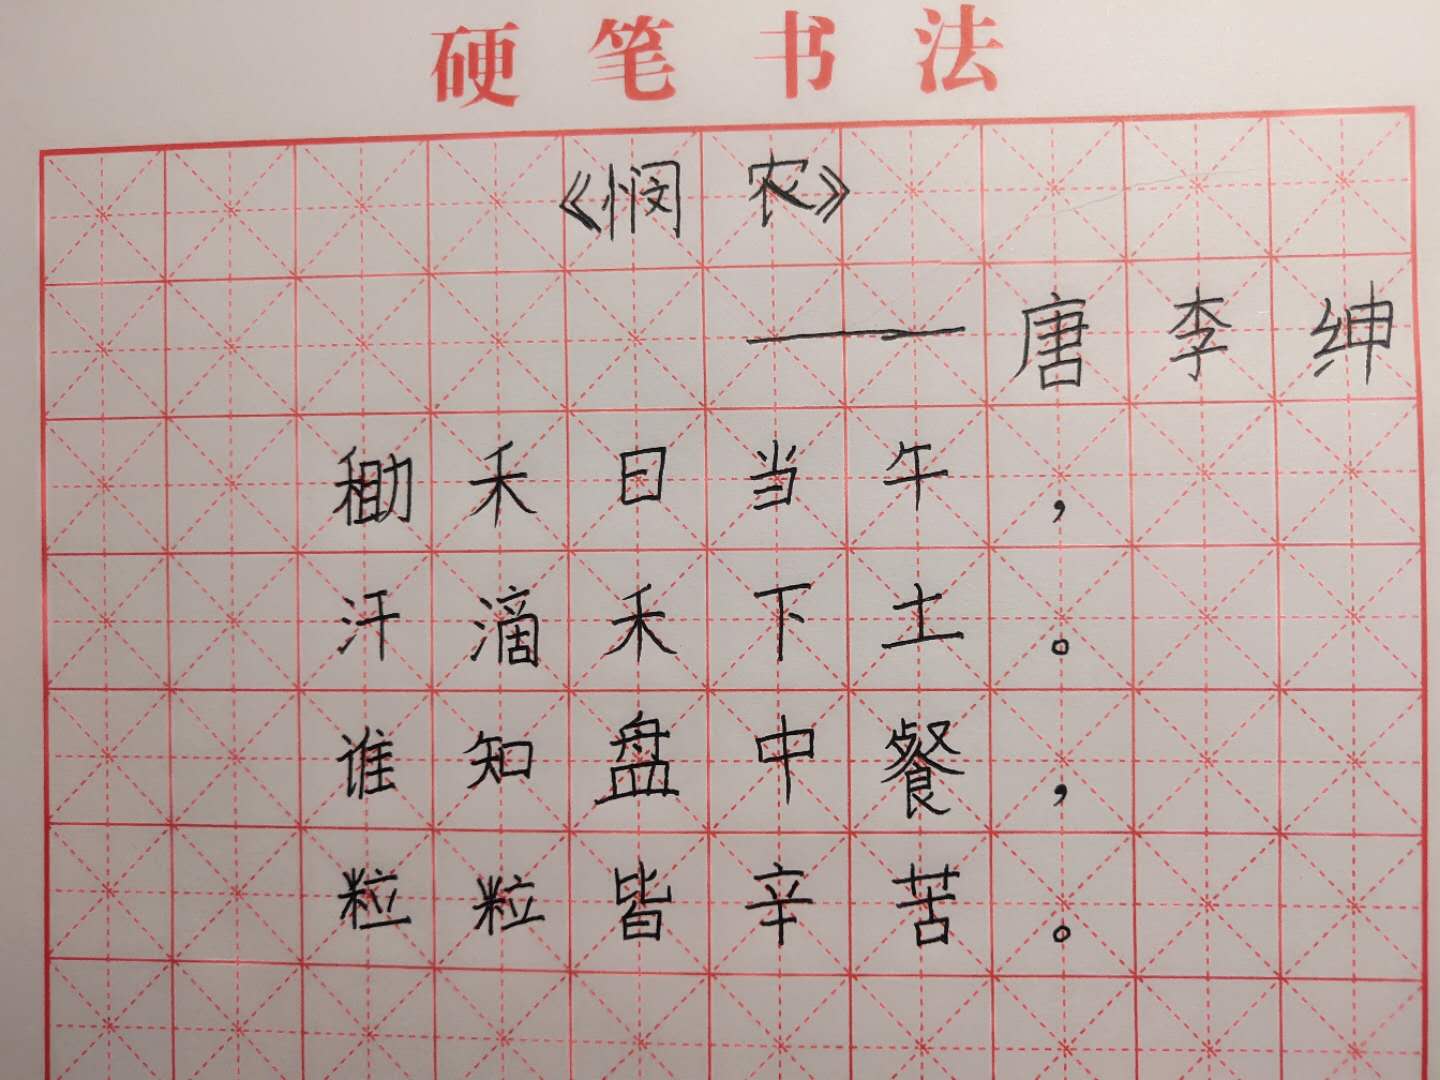 硬笔书法
《悯农》
——唐李绅
耡禾日当午，
汗滴禾下土。
谁知盘中餐，
粒粒皆辛苦。